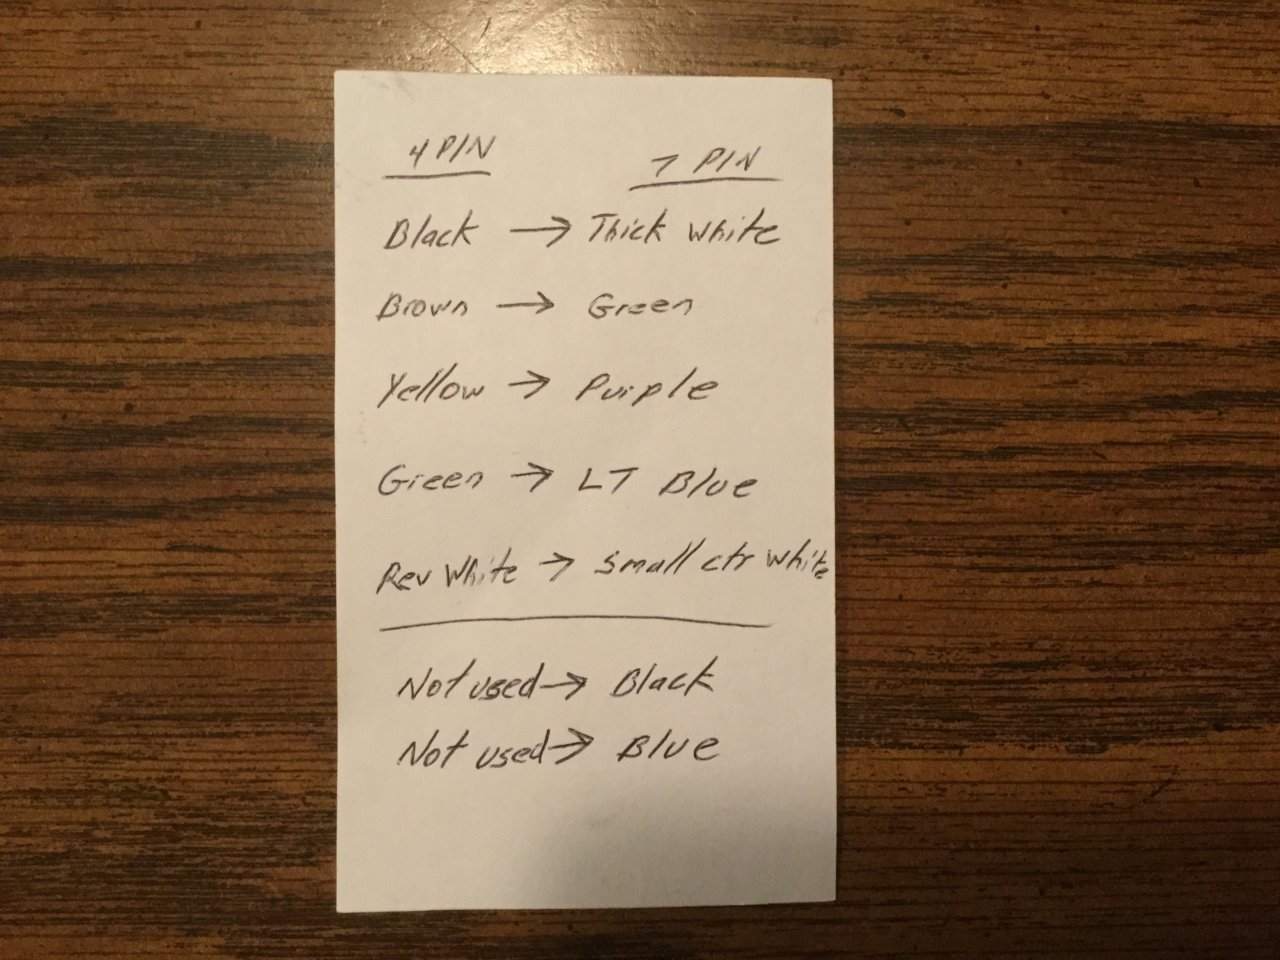 4 PIN 7 PIN
Black → Thick white
Brown → Green
Yellow → Purple
Green → LT Blue
Rev White → Small ctr white
Not used → Black
Not used → Blue